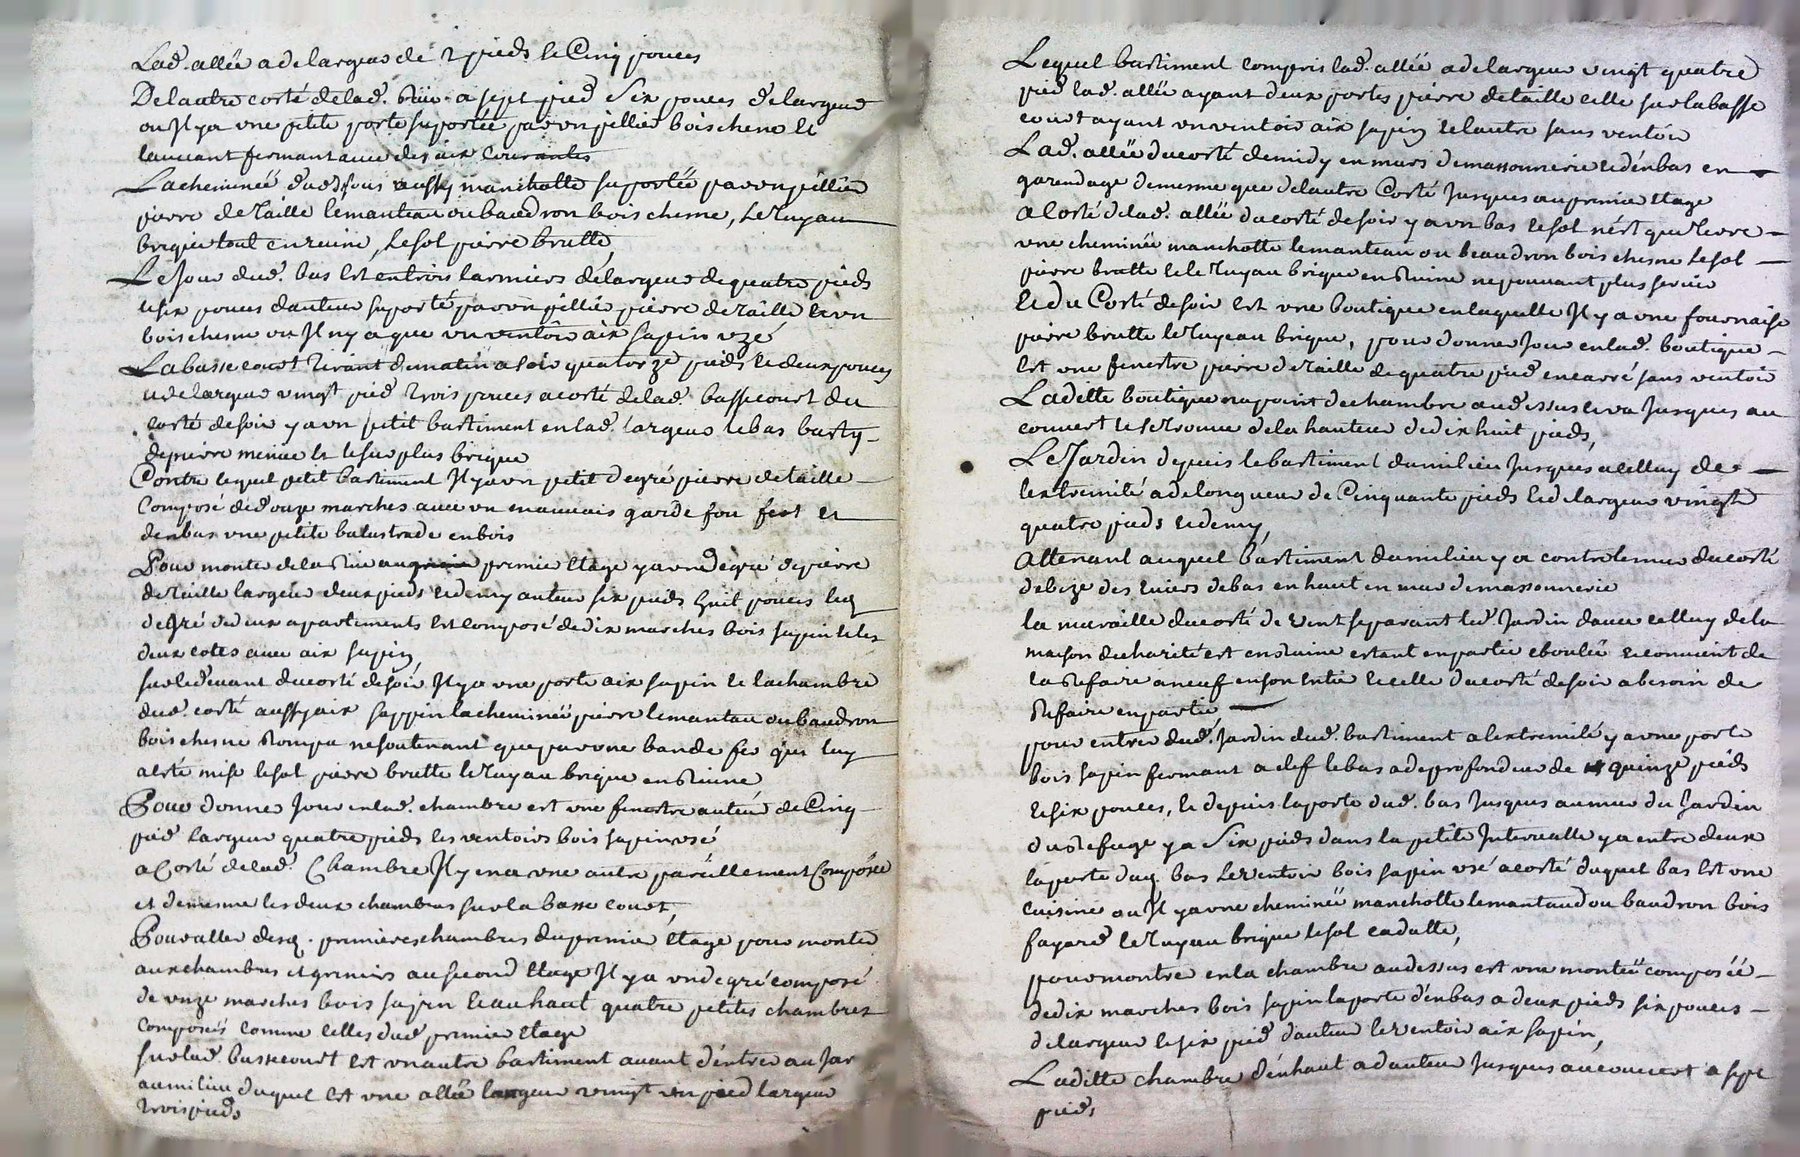 Lad. allée a de largeur de 2 pieds et Cinq pouces
De lautre corté de lad. Ruë a sept pied Six pouces de largeur
ou Jl ya une petite porte suportée par un pillier bois chene et
lauuant fermant auec des aix courantes
La cheminéë dud fous aussy manchotte suportéë par un pillier
pierre de taille le manteau ou baudron bois chesne, Le tuyau
brique tout en ruine, Le sol pierre brutte
Le Jour dud. bas Est en trois larmiers de largeur de quatre pieds
et six pouces dauteur suporté par un pillié pierre de taille et un
bois chesne ou Jl ny a que un ventoir aix sapin uzé
La basse court tirant du matin a soir quatorze pieds et deux pouces
et de largeur vingt pied trois pouces a corté de lad. basse court du
corté de soir y a un petit bastiment en lad. largeur le bas basty
de pierre menue et le surplus brique
Contre lequel petit bastiment Jl ya un petit degré pierre de taille
Composé de douze marches auec un mauuais garde fou fert et
den bas une petite balustrade en bois
Pour monter de la Ruë au premier Etage y a un degré de pierre
de taille largeur deux pieds et demy auteur six pieds huit pouces led
degré de deux apartements Est composé de dix marches bois sapin et les
deux cotes auec aix sapin,
sur le deuant du corté de soir Jl ya une porte aix sapin et la chambre
dud. corté aussy aix sappin la chemineë pierre le mantau ou baudron
bois chesne Rompu ne soutenant que par une bande fer qui luy
a esté mise le sol pierre brutte le tuyau brique en Ruine
Pour donner Jour en lad. chambre est une fenestre auteur de Cinq
pied largeur quatre pieds les ventoirs bois sapin usé
a Corté de lad. Chambre Jl y en a une autre pareillement Composée
et de mesme les deux chambres sur la basse court,
Pour aller desd. premieres chambres du premier Etage pour monter
aux chambres et greniers au second Etage Jl ya un degré composé
de unze marches bois sapin et au haut quatre petites chambres
composées comme celles dud premier Etage
sur lad. basse court est un autre bastiment auant dentrer au Jar
au milieu duquel est une allée largeur vingt un pied largeur
trois pieds
Lequel bastiment compris lad. allée a de largeur vingt quatre
pied lad. allée ayant deux portes pierre de taille celle sur la basse
court ayant un ventoir aix sapin et lautre sans ventoir
Lad. alleë du corté de midy en murs de massonnerie et den bas en
garendage de mesme que de lautre Corté Jusques au premier Etage
a Corté de lad. allée du corté de soir y a un bas le sol nest que terre
une cheminéë manchotte le manteau ou beaudron bois chesne le sol
pierre brutte et le tuyau brique en Ruine ne pouuant plus seruir
Et du Corté de soir est une boutique en laquelle Jl y a une fournaise
pierre brutte le tuyeau brique, pour donner Jour en lad. boutique
Est une fenestre pierre de taille de quatre pied en carré sans ventoir
Laditte boutique na point de chambre au dessus et va Jusques au
couuert et se trouue de la hauteur de dix huit pieds,
Le Jardin depuis le bastiment du milieu Jusques a celluy de
lextremité a de longueur de Cinquante pieds Et de largeur vingt
quatre pieds et demy
Attenant auquel bastiment du milieu y a contre le mur du corté
de bize des Euiers de bas en haut en mur de massonnerie
la muraille du corté de vent separant led Jardin dauec celluy de la
maison de charité est en Ruine estant en partie eboulée et conuient de
la Refaire a neuf en son Entier et celle du corté de soir a besoin de
Refaire en partie
pour entrer dud. Jardin dud. bastiment a lextremité y a une porte
bois sapin fermant a clef le bas a de profondeur de quinze pieds
et six pouces, et depuis la porte dud. bas Jusques au mur du Jardin
du Refuge y a Six pieds dans la petite Interualle y a entre deux
la porte dud. bas et ventoir bois sapin usé a corté duquel bas Est une
cuisine ou Jl y a une chemineë manchotte le mantaud ou baudron bois
fayard le tuyau brique le sol cadatte,
pour monter en la chambre au dessus est une monteë composéë
de dix marches bois sapin la porte den bas a deux pieds six pouces
de largeur et six pied dauteur le ventoir aix sapin,
Laditte chambre den haut a dauteur Jusques au couuert a sept
pied,